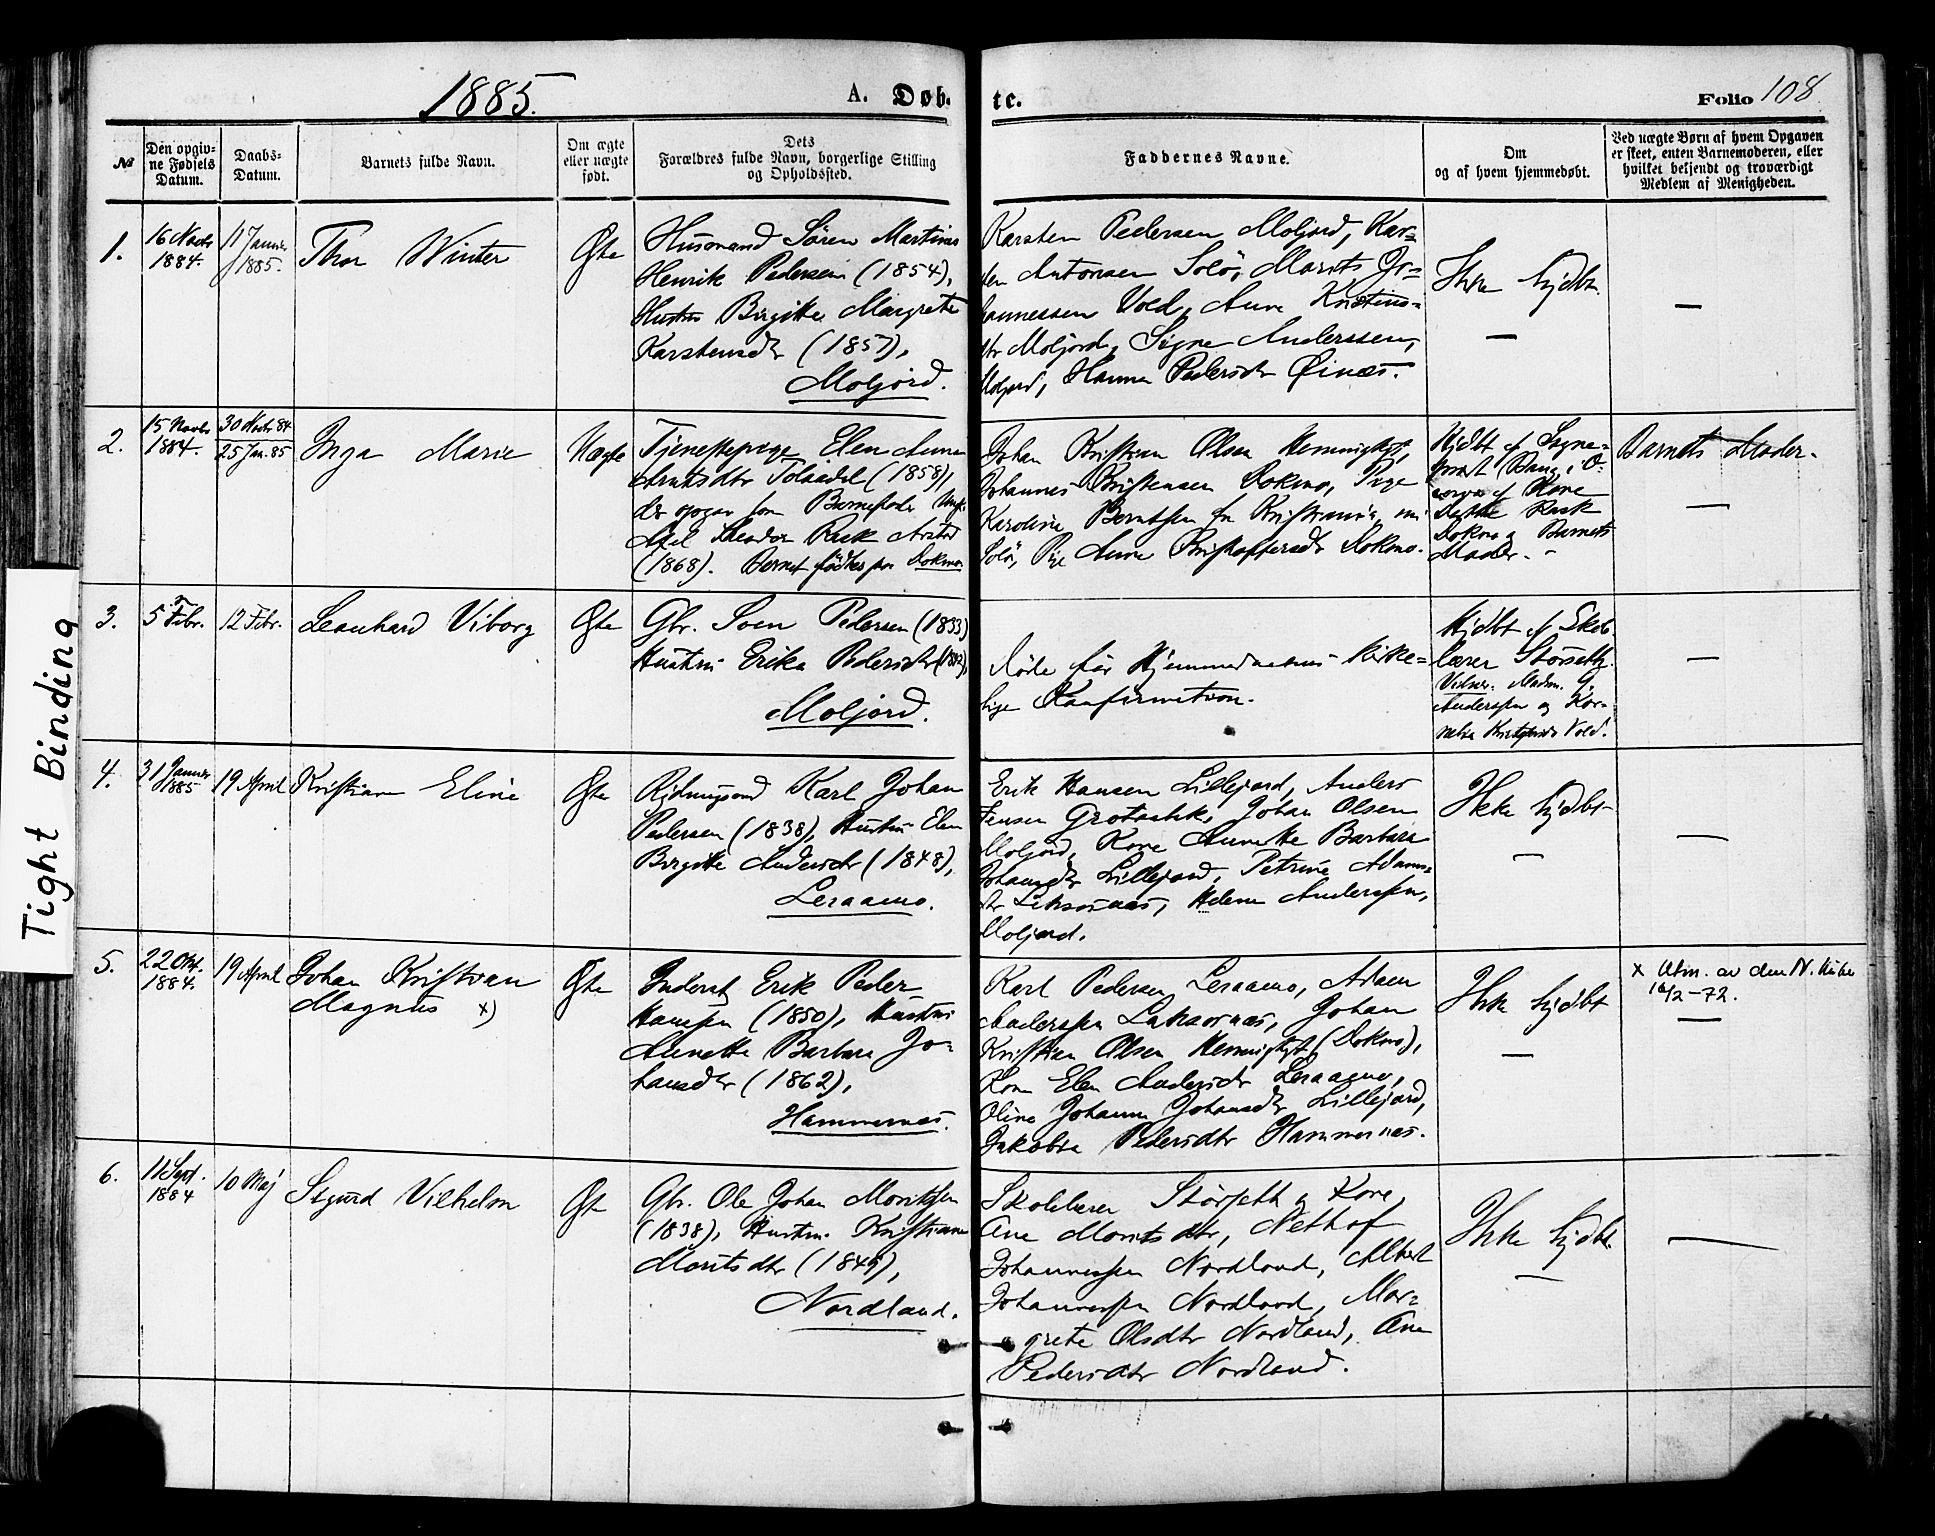 1885.
A. Døb-
te.
Folio 108
Tight Binding
№
Den opgiv-
ne Fødsels
Datum.
Daabs-
Datum.
Barnets fulde Navn.
Om ægte
eller uægte
født.
Dets
Forældres fulde Navn, borgerlige Stilling
og Opholdssted.
Faddernes Navne.
Om
og af hvem hjemmedøbt.
Ved uægte Børn af hvem Opgaven
er skeet, enten Barnemoderen, eller
hvilket bekjendt og troværdigt
Medlem af Menigheden.
1.
16 Novbr
1884.
11 Januar
1885.
Thor Winter
Ægte
Husmand Søren Martinus
Henrik Pedersen (1854),
Hustru Birgitte Margrete
Karstensdtr (1857),
Moljord.
Karsten Pedersen Moljord, Kar-
sten Antonsen Solø, Marits Jo-
hannessen Vold, Anne Kristins-
dtr Moljord, Signe Anderssen,
Moljord, Hanna Pedersdtr Øinæs.
Ikke hjdbt.
—
—
2.
15 Novbr
1884.
30 Novbr 84
25 Jan. 85
Inga Marie
Uægte
Tjenestepige Elen Anna
Arntsdtr Tolaadal (1858),
der opgav som Barnefader Ungk.
Axel Theodor Rask
(1868). Barnet fødtes paa Dokmo
Johan Kristian Olsen Hemmigtyt,
Johannes Kristensen Dokmo, Pige
Karoline Berntsen fra Kristiania, nu
Solø, Pige Anne Kristoffersdtr Dokmo.
Hjdbt af Signe-
af Kone
Rask
Dokmo og Barnets
Moder. -
Barnets Moder.
—
3.
5 Febr.
12 Febr.
Leonhard Viborg
Ægte
Gbr. Soen Pedersen (1833)
Hustru Erika Pedersdtr (1842),
Moljord.
Døde før Hjemmedaabens kirke-
lige Konfirmation.
Hjdbt af Skole-
lærer Størseth.
Vidner. Madm. G.
Anderssen og Kor-
nelia Kristofersdtr Vold.
—
4.
31 Januar
1885
19 April
Kristian Eline
Ægte
Rydningsmd Karl Johan
Pedersen (1838), Hustru Elen
Birgitte Andersdtr (1848),
Leraamo.
Erik Hansen Lillejord, Anders
Jensen Grotaahk, Johan Olsen
Moljord, Kone Annette Barbara
Johansdtr Lillejord, Petrine Adams-
dtr Laksosnæs, Helene Anderssen,
Moljord.
Ikke hjdbt
—
—
5.
22 Okt.
1884.
19 April
Johan Kristian
Magnus x)
Ægte
Inderst Erik Peder
Hanssen (1850), Hustru
Annette Barbara Jo-
hansdtr (1862),
Hammernæs.
Karl Pedersen Leraamo, Adam
Anderssen Laksosnæs, Johan
Kristian Olsen Hemmigtyt (Dokmo),
Kone Elen Andersdtr Leraamo,
Oline Johanna Johansdtr Lillejord,
Jakobia Pedersdtr Hammernæs.
Ikke hjdbt
—
x Utm. av den N. Kirke
16/2-72.
—
6.
11 Sept.
1884
10 Maj
Sigurd Vilhelm
Ægte
Gbr. Ole Johan Moritssen
(1838), Hustru Kristiane
Moritsdtr (1849),
Nordland.
Skolelærer Størseth og Kone,
Ane Moritsdtr, Nethof
Johannessen Nordland, Albert
Johannessen Nordland, Mar-
grete Olsdtr Nordland, Ane
Pedersdtr Nordland.
Ikke hjdbt
—
—